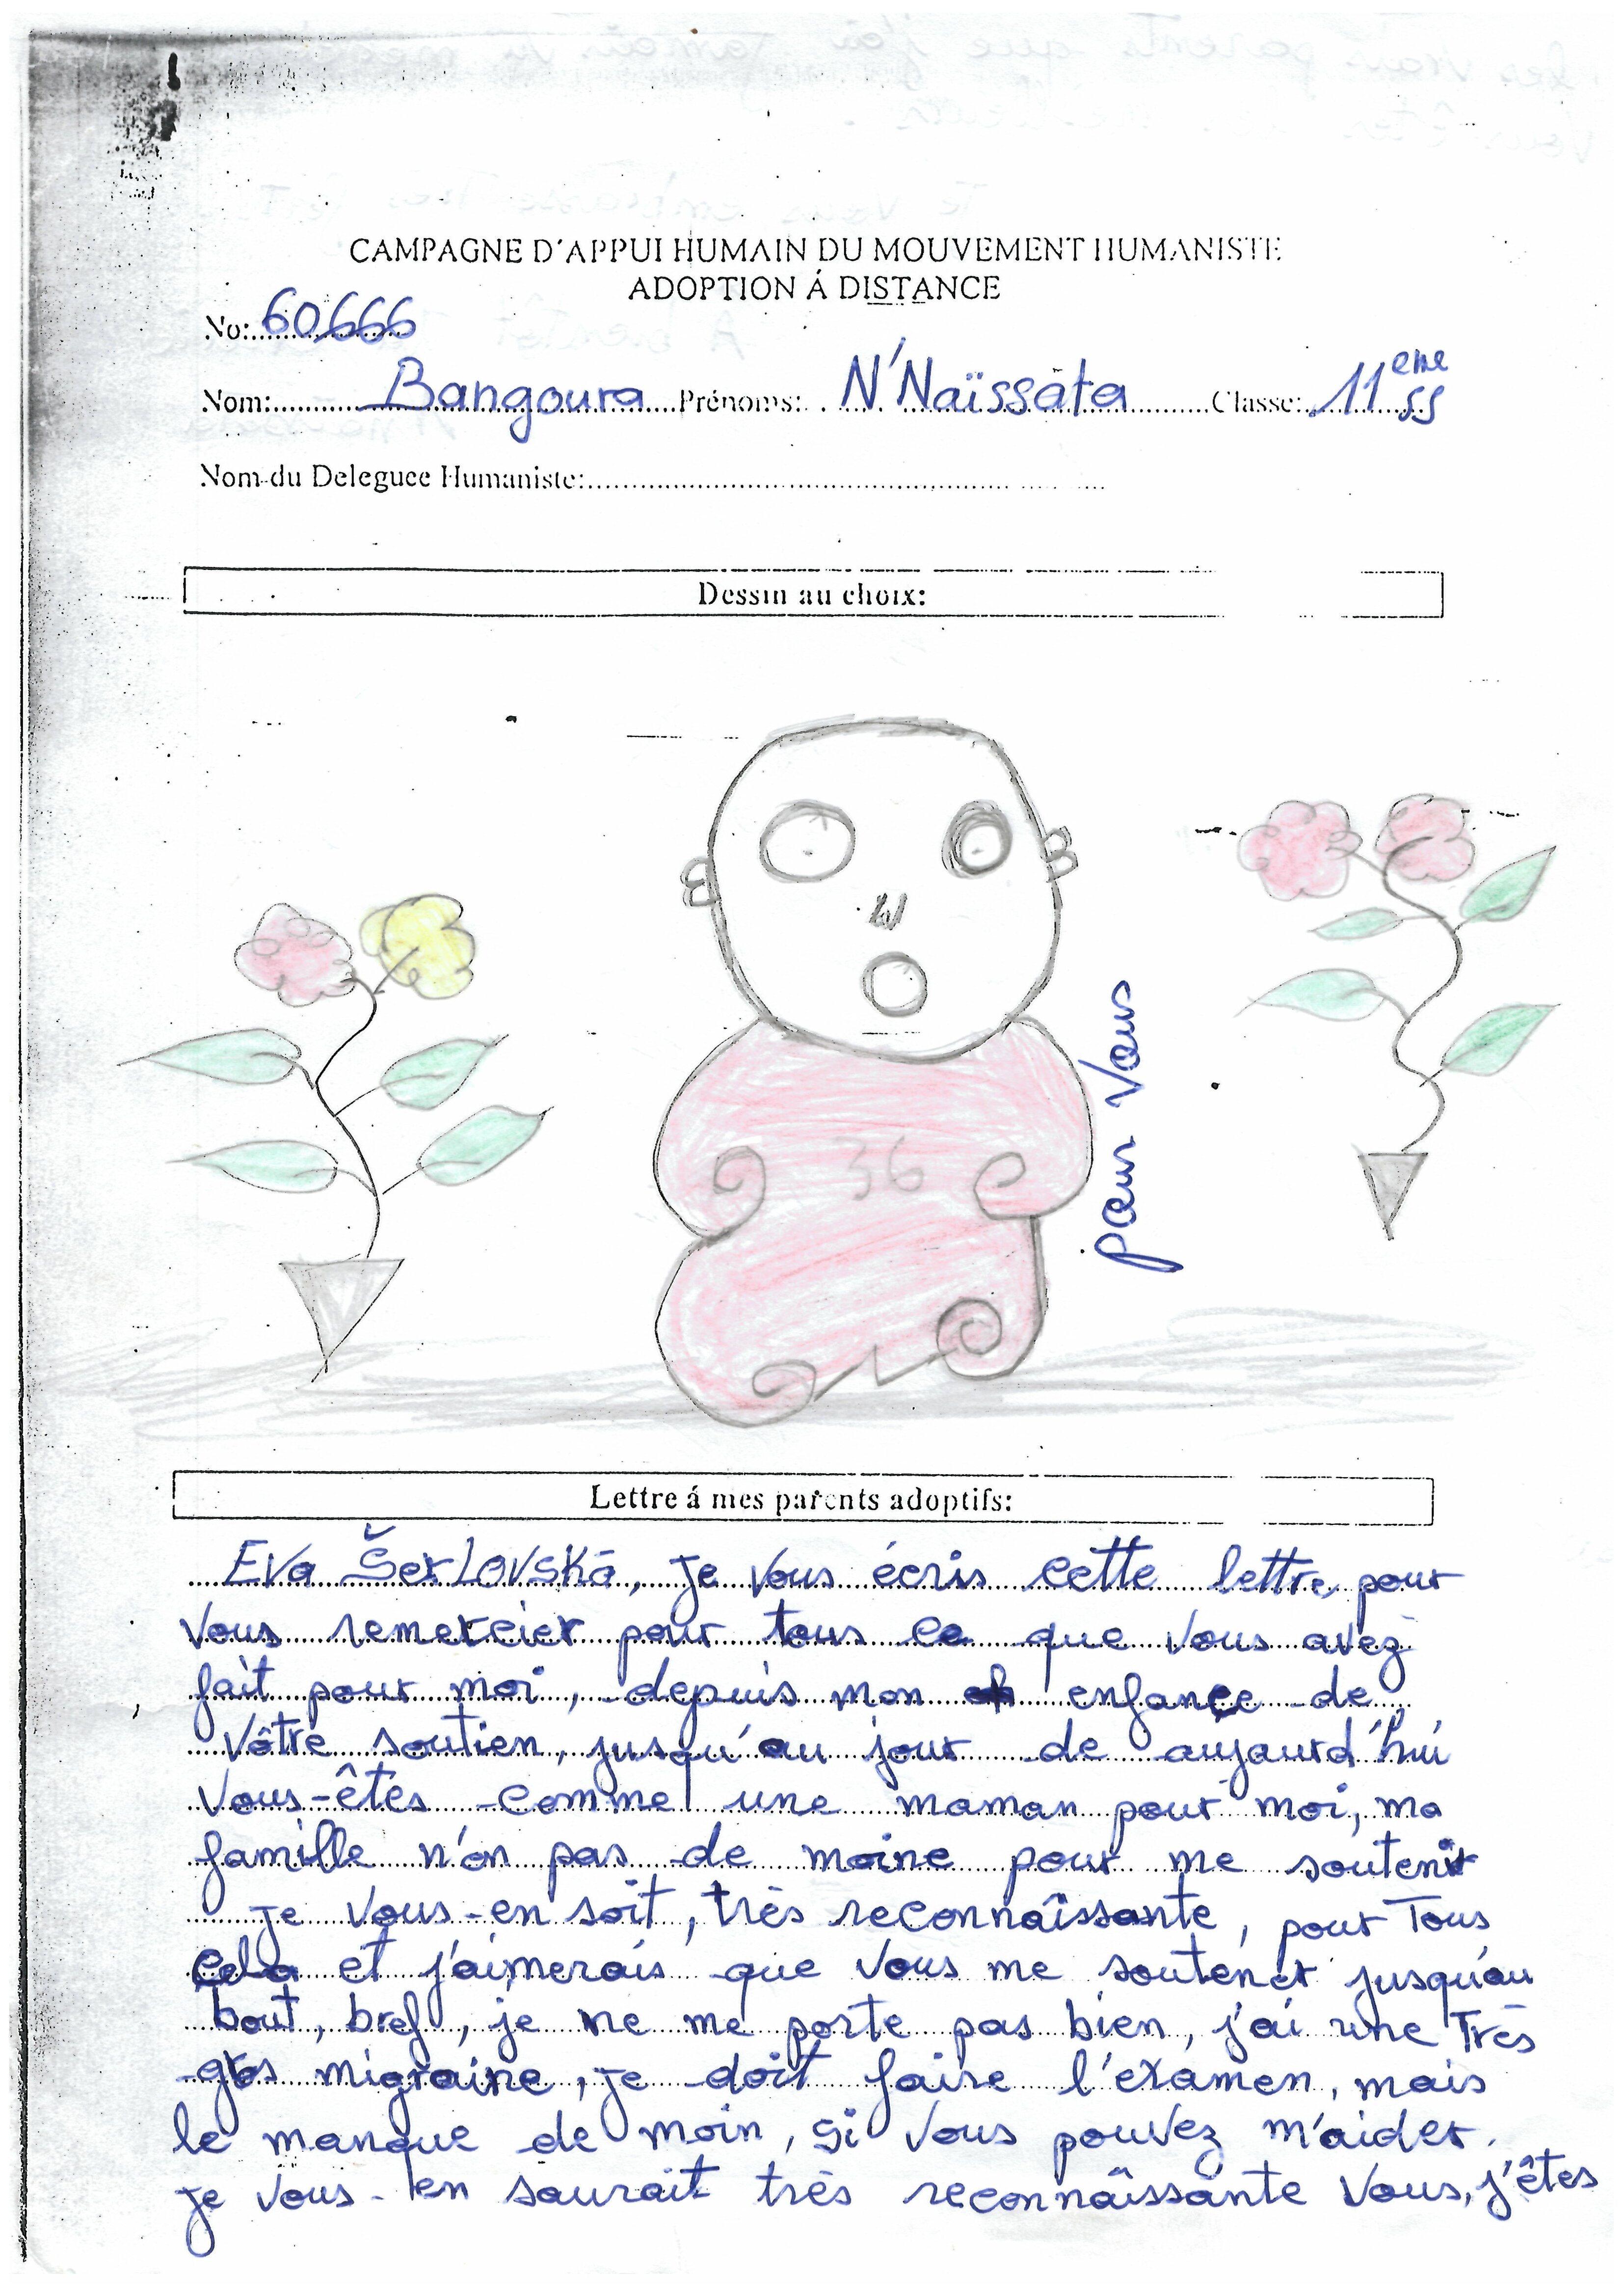 CAMPAGNE D'APPUI HUMAIN DU MOUVEMENT HUMANISTE
ADOPTION Á DISTANCE
No: 60666
Nom: Bangoura Prénoms: N'Naïssata Classe: 11eme SS
Nom du Deleguee Humaniste:
Dessin au choix:
36
pour Vous
Lettre á mes parents adoptifs:
Eva Šerlovská, je vous écris cette lettre pour
vous remercier pour tous ce que vous avez
fait pour moi, depuis mon enfance de
Vôtre soutien, jusqu'au jour de aujaurd'hui
Vous-êtes comme une maman pour moi, ma
famille n'on pas de moine pour me soutenir
je vous-en soit, très reconnaîssante, pour Tous
cela et j'aimerais que vous me soutener jusqu'au
bout, bref, je ne me porte pas bien, j'ai une Très
gros migraine, je doit faire l'examen, mais
le manque de moin, si vous pouvez m'aider.
je vous-en saurait très reconnaîssante Vous, j'êtes